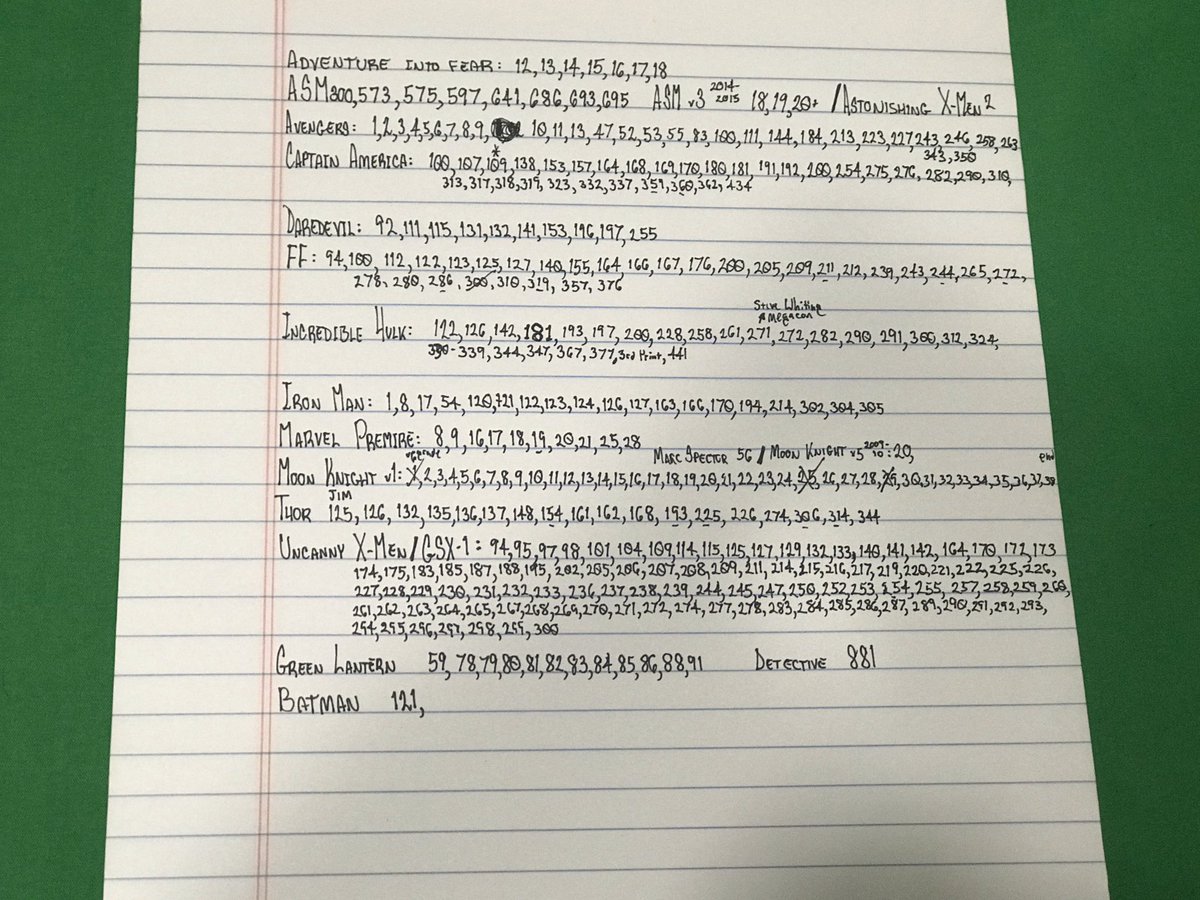 ADVENTURE INTO FEAR: 12,13,14,15,16,17,18
ASM 300,573,575,597,641,686,693,695 ASM v3 2014 2015 18,19,20+ /ASTONISHING X-MEN 2
AVENGERS: 1,2,3,4,5,6,7,8,9, 10,11,13,47,52,53,55,83,100,111,144,184,213,223,227,243,246,258,263
343,350
CAPTAIN AMERICA: 100,107,109,138,153,157,164,168,169,170,180,181,191,192,200,254,275,276,282,290,310,
313,317,318,319,323,332,337,359,360,362,434
DAREDEVIL: 92,111,115,131,132,141,153,196,197,255
FF: 94,100,112,122,123,125,127,140,155,164,166,167,176,200,205,209,211,212,239,243,244,265,272,
278,280,286,300,310,319,357,376
Steve Whiting
@ Megacon
INCREDIBLE HULK: 122,126,142,181,193,197,200,228,258,261,271,272,282,290,291,300,312,324,
330-339,344,347,367,377,3rd Print,441
IRON MAN: 1,8,17,54,120,121,122,123,124,126,127,163,166,170,194,214,302,304,305
MARVEL PREMIRE: 8,9,16,17,18,19,20,21,25,28
upgrade MARC SPECTOR 56 / MOON KNIGHT v5 2009-10:20,
MOON KNIGHT v1: 1,2,3,4,5,6,7,8,9,10,11,12,13,14,15,16,17,18,19,20,21,22,23,24,25,26,27,28,29,30,31,32,33,34,35,36,37,38
JIM
THOR 125,126,132,135,136,137,148,154,161,162,168,193,225,226,274,306,314,344
UNCANNY X-MEN/GSX-1: 94,95,97,98,101,104,109,114,115,125,127,129,132,133,140,141,142,164,170,172,173
174,175,183,185,187,188,195,202,205,206,207,208,209,211,214,215,216,217,219,220,221,222,225,226,
227,228,229,230,231,232,233,236,237,238,239,244,245,247,250,252,253,254,255,257,258,259,260,
261,262,263,264,265,267,268,269,270,271,272,274,277,278,283,284,285,286,287,289,290,291,292,293,
294,295,296,297,298,299,300
GREEN LANTERN 59,78,79,80,81,82,83,84,85,86,88,91 DETECTIVE 881
BATMAN 121,